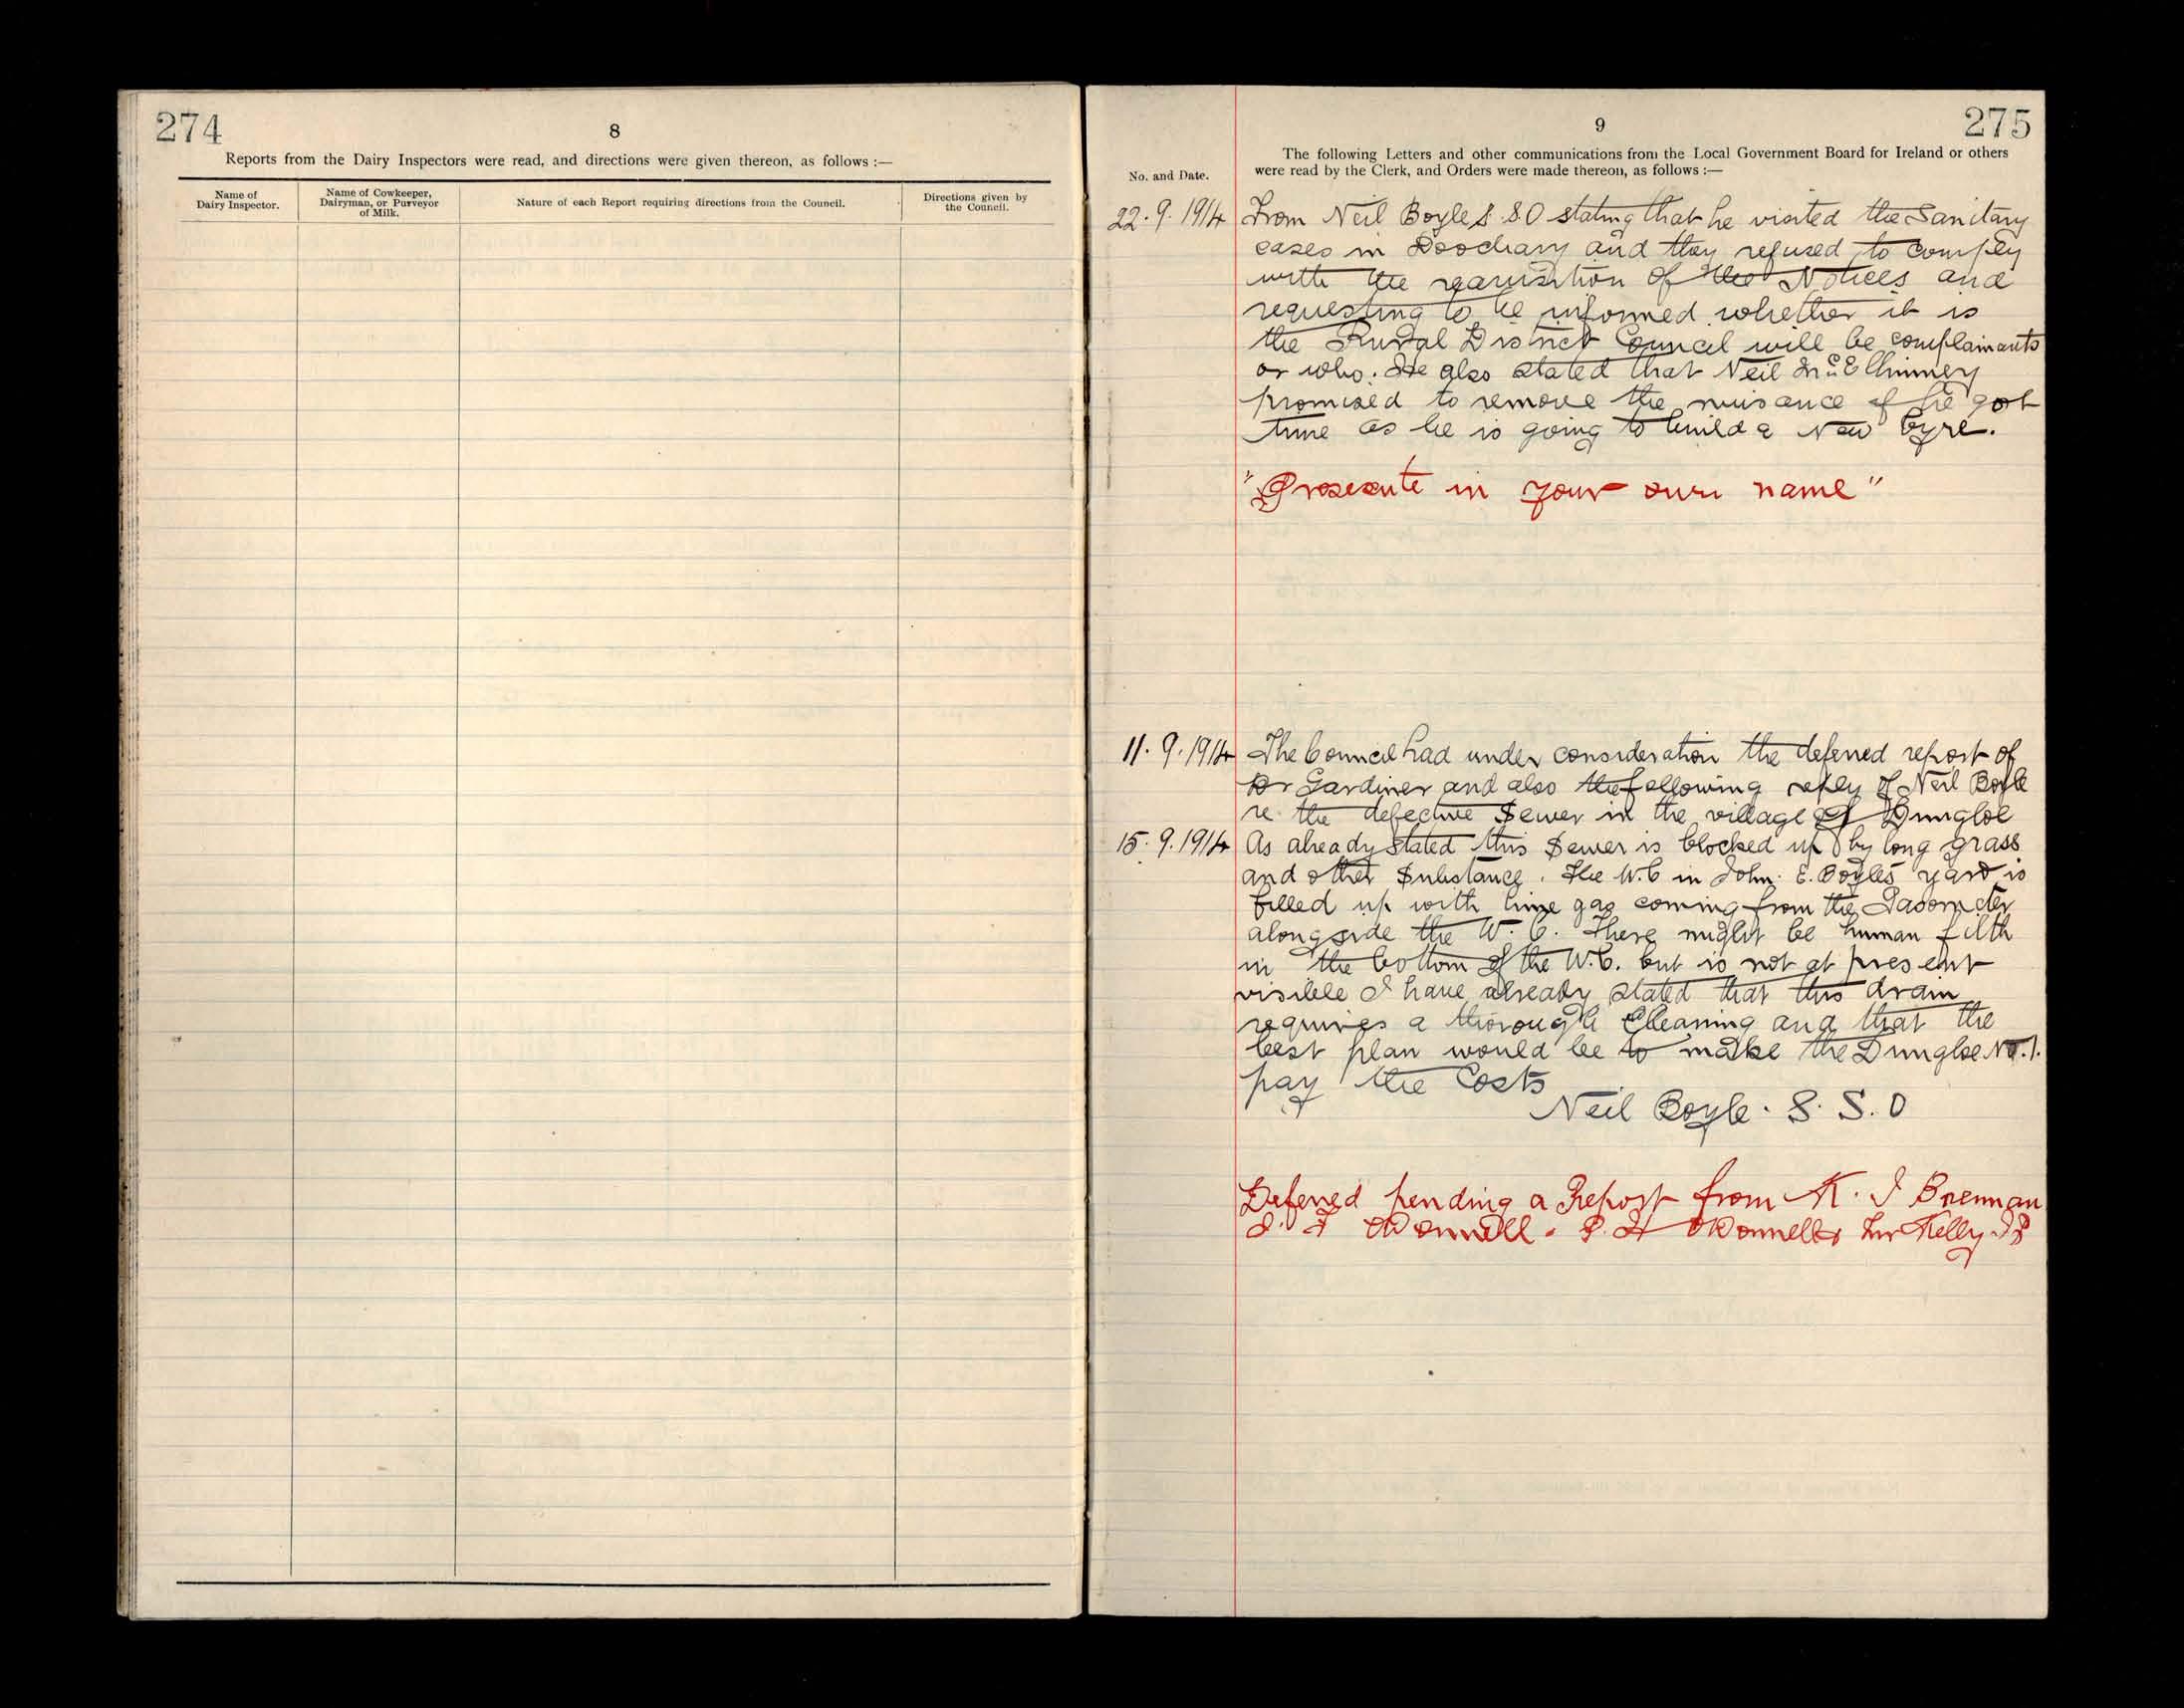 274
8
Reports from the Dairy Inspectors were read, and directions were given thereon, as follows :—
Name of
Dairy Inspector.
Name of Cowkeeper,
Dairyman, or Purveyor
of Milk.
Nature of each Report requiring directions from the Council.
Directions given by
the Council.
275
9
The following Letters and other communications from the Local Government Board for Ireland or others
were read by the Clerk, and Orders were made thereon, as follows :—
No. and Date.
22.9.1914 From Neil Boyle S.S.O stating that he visited the Sanitary
cases in Doochary and they refused to comply
with the requisition of the Notices and
requesting to be informed whether it is
the Rural District Council will be complainants
or who. He also stated that Neil
promised to remove the nuisance if he got
time as he is going to build a New Byre.
"Prosecute in your own name"
11.9.1914 The Council had under consideration the deferred report of
Dr Gardiner and also the following reply of Neil Boyle
re the defective Sewer in the village of Dungloe
15.9.1914 As already stated this Sewer is blocked up by long grass
and other Substance. The W.C in John E. Boyles yard is
filled up with lime gas coming from the Gasometer
alongside the W.C. There might be human filth
in the bottom of the W.C. but is not at present
visible I have already stated that this drain
requires a thorough Cleaning and that the
best plan would be to make the Dungloe No.1.
pay the Costs
Neil Boyle. S.S.O
Deferred pending a Report from J Brennan
O'Donnell. P. O'Donnell & Kelly JP